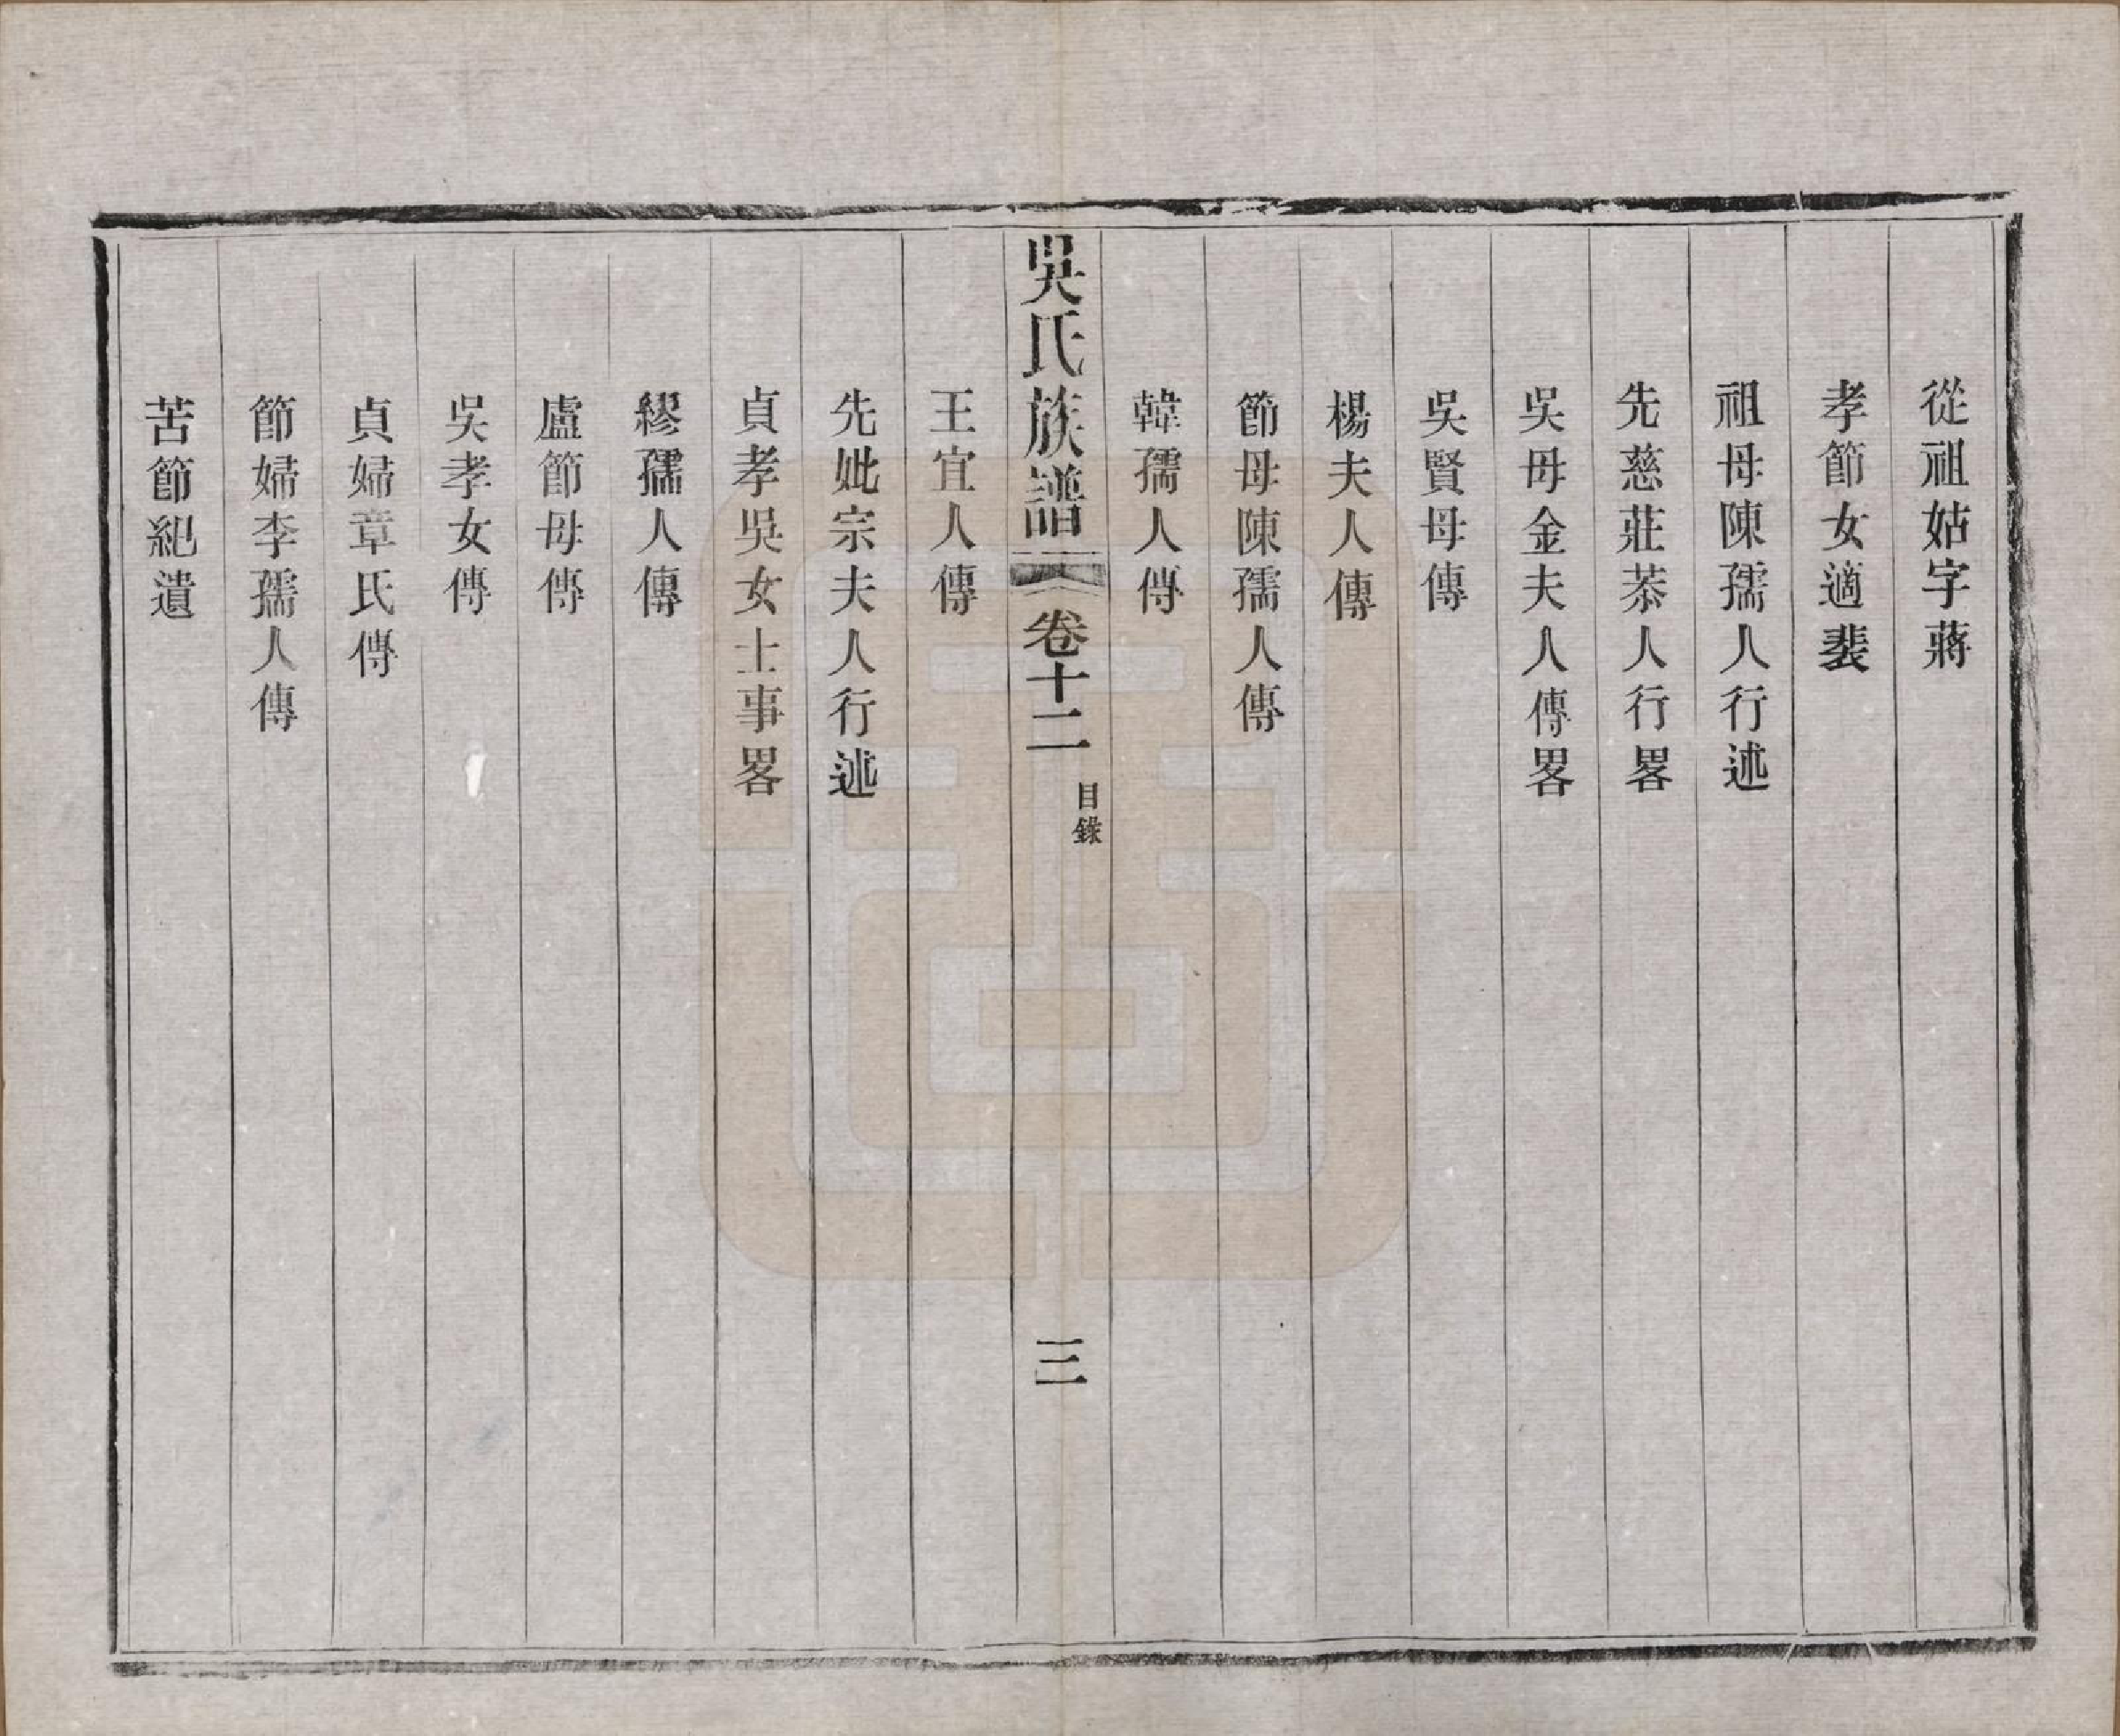 從祖姑字蔣
孝節女適裴
祖母陳孺人行述
先慈莊恭人行畧
吳母金夫人傳畧
吳賢母傳
楊夫人傳
節母陳孺人傳
韓孺人傳
吳氏族譜
卷十二
目錄
三
王宜人傳
先妣宗夫人行述
貞孝吳女士事畧
繆孺人傳
盧節母傳
吳孝女傳
貞婦章氏傳
節婦李孺人傳
苦節紀遺